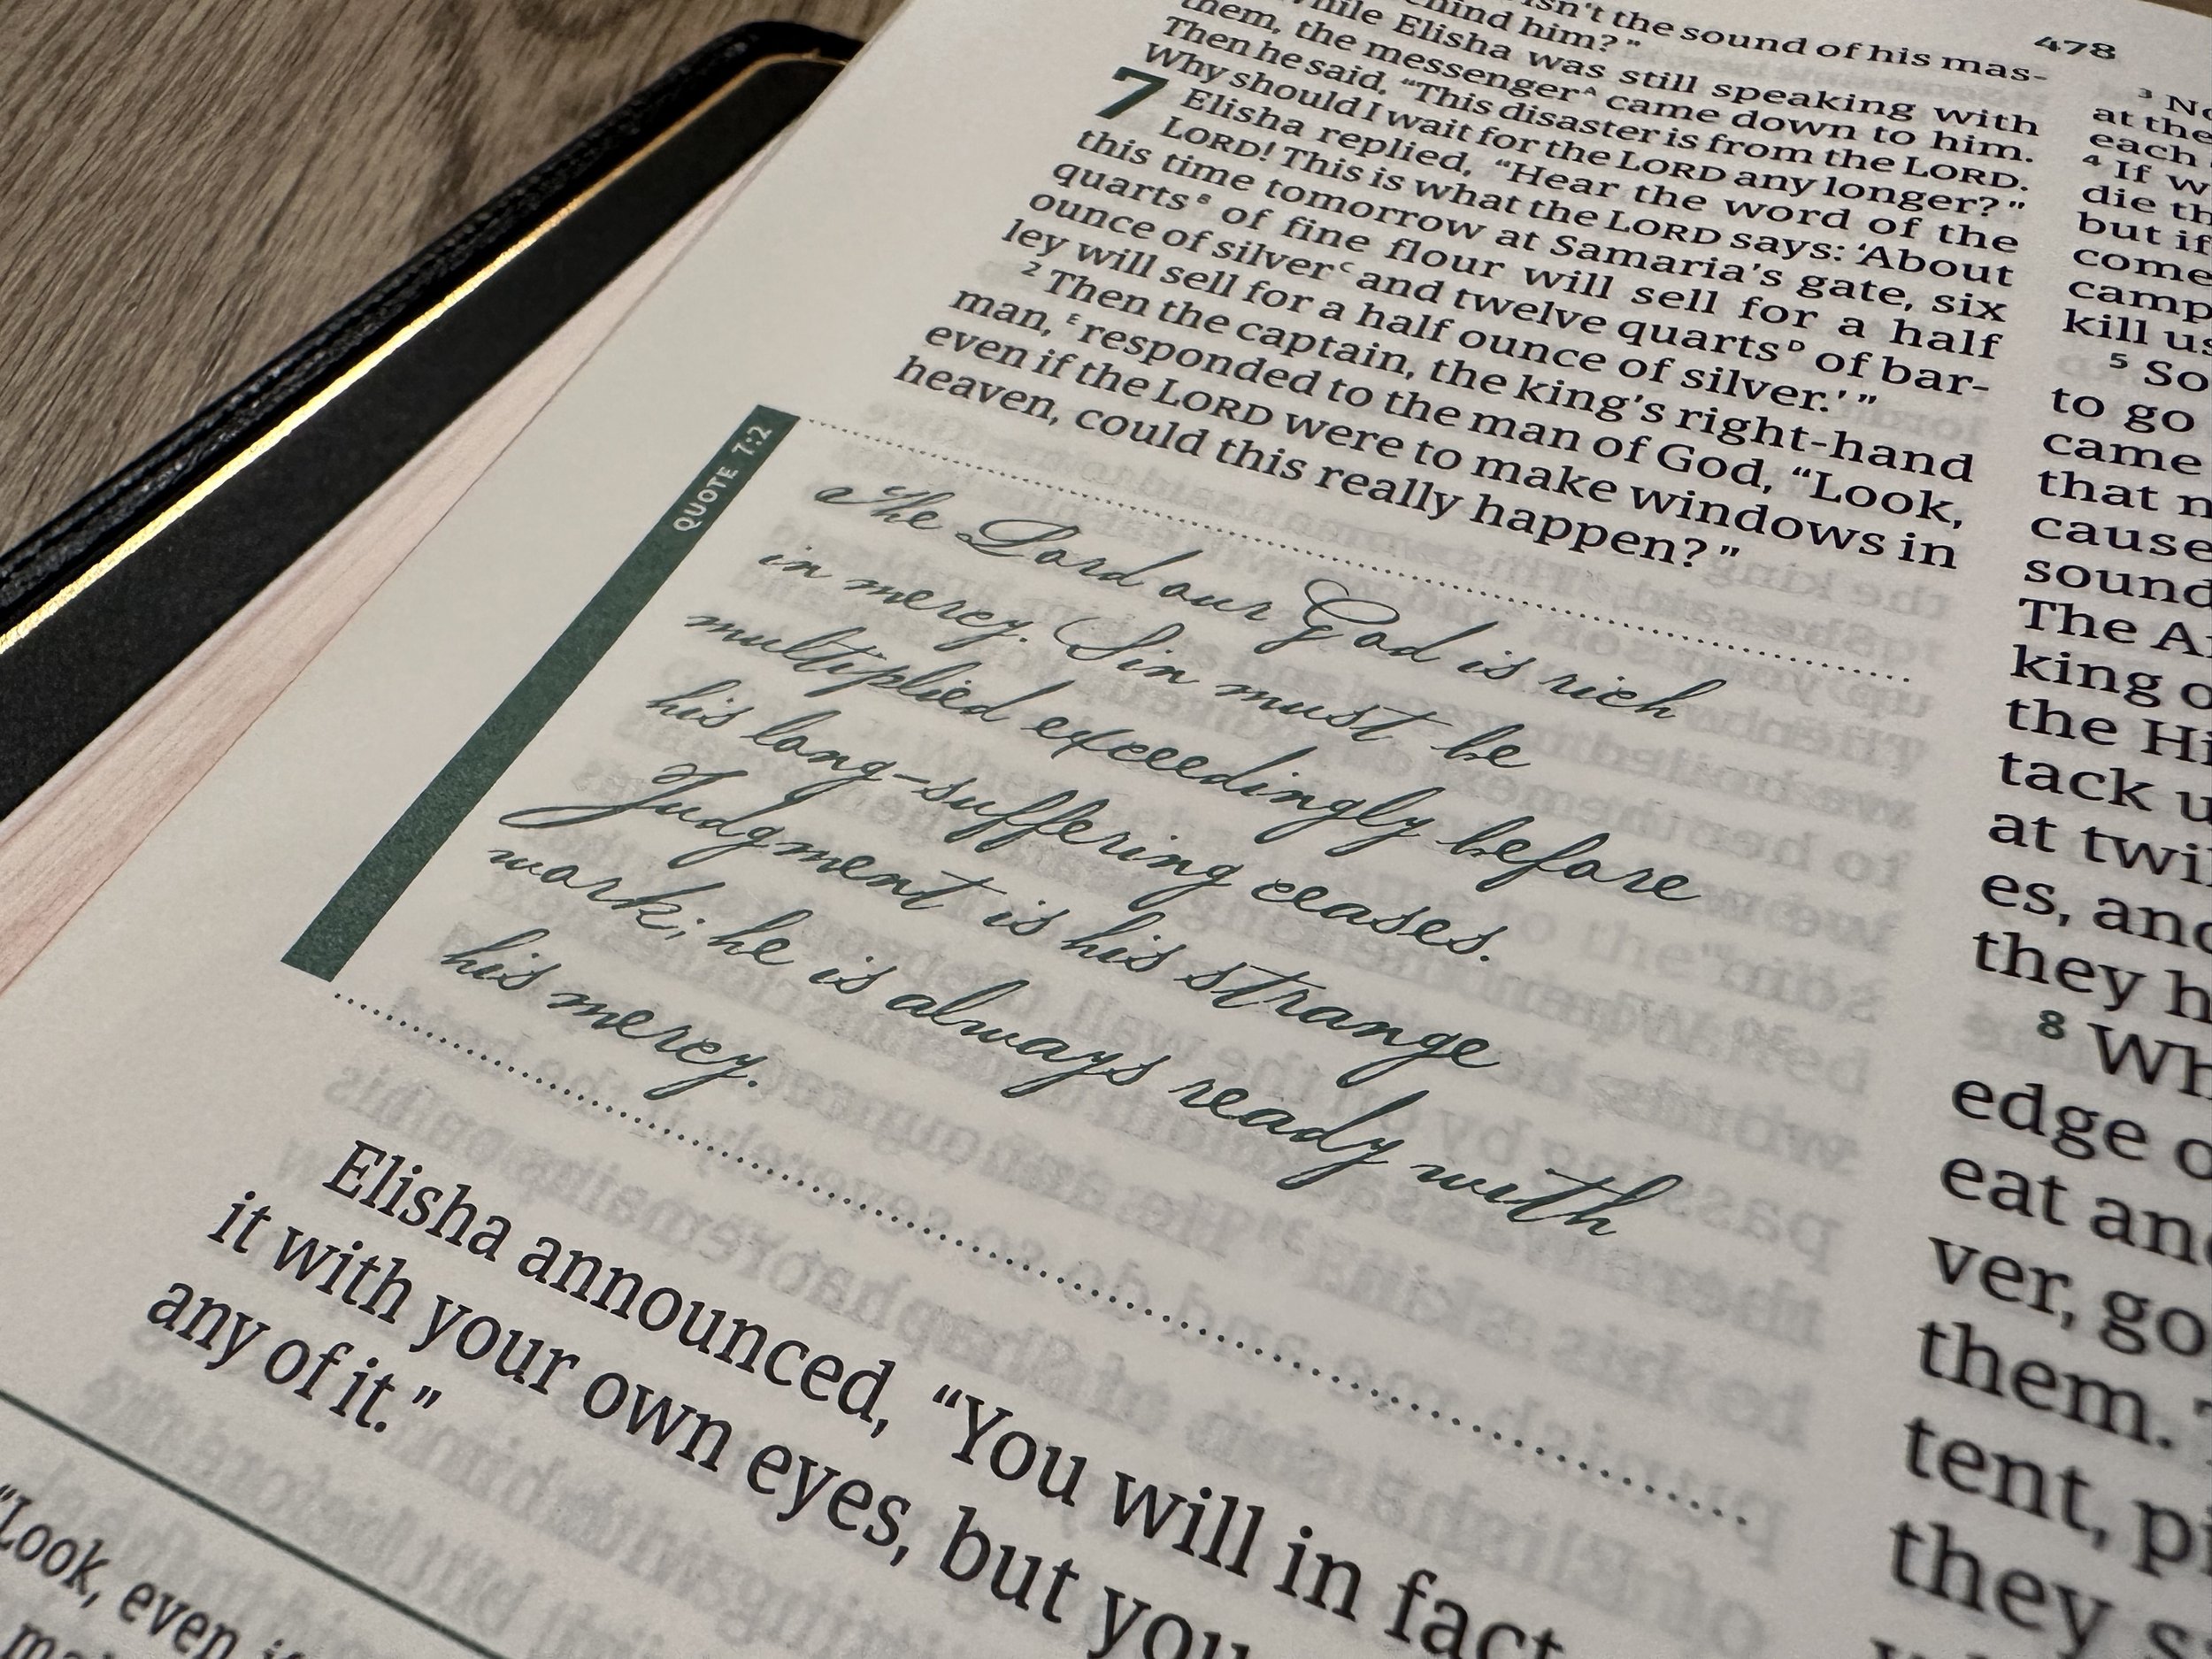 478
isn't the sound of his mas-
behind him?"
while Elisha was still speaking with
them, the messengerᴬ came down to him.
Then he said, “This disaster is from the LORD.
Why should I wait for the LORD any longer?”
7 Elisha replied, “Hear the word of the
LORD! This is what the LORD says: ‘About
this time tomorrow at Samaria's gate, six
quartsᴮ of fine flour will sell for a half
ounce of silverᶜ and twelve quartsᴰ of bar-
ley will sell for a half ounce of silver.’”
² Then the captain, the king's right-hand
man,ᴱ responded to the man of God, “Look,
even if the LORD were to make windows in
heaven, could this really happen?”
QUOTE 7:2
The Lord our God is rich
in mercy. Sin must be
multiplied exceedingly before
his long-suffering ceases.
Judgment is his strange
work; he is always ready with
his mercy.
Elisha announced, “You will in fact
it with your own eyes, but you
any of it.”
“Look, even
³
at the
each
⁴ If
die
but if
come
camp
kill us
⁵ So
to go
came
that
cause
sound
The
king
the
tack
at
es, and
they
⁸
edge
eat and
ver, go
them.
tent,
they